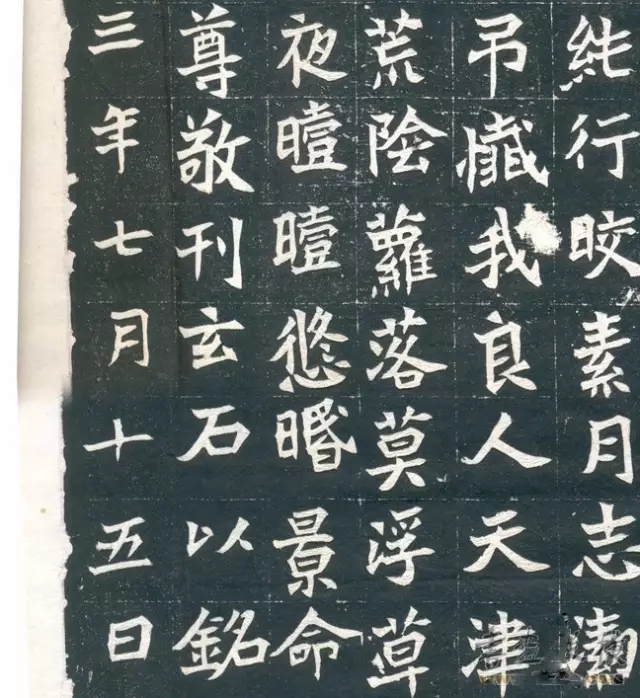 純行晈素月志
吊我良人天津
荒陰蘿落莫浮草
夜曀曀悠景命
尊敬刊玄石以銘
三年七月十五日